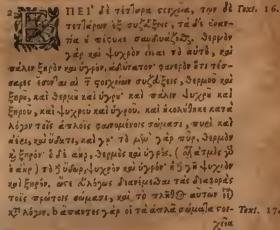 2 ΕΠΕΙ δὲ τέτταρα στοιχεῖα, τῶν δὲ Text. 16.
τεττάρων ἓξ συζεύξεις, τὰ δὲ ἐναν-
τία πέφυκε συνδυάζεσθαι, θερμὸν
γὰρ καὶ ψυχρὸν εἶναι τὸ αὐτὸ, καὶ
πάλιν ξηρὸν καὶ ὑγρὸν, ἀδύνατον· φανερὸν ὅτι τέσ-
σαρες ἔσονται αἱ τῶν στοιχείων συζεύξεις, θερμοῦ καὶ
ξηροῦ, καὶ θερμοῦ καὶ ὑγροῦ· καὶ πάλιν ψυχροῦ καὶ
ξηροῦ, καὶ ψυχροῦ καὶ ὑγροῦ. καὶ ἠκολούθηκε κατὰ
λόγον τοῖς ἁπλοῖς φαινομένοις σώμασι, πυρὶ καὶ
ἀέρι, καὶ ὕδατι, καὶ γῇ· τὸ μὲν γὰρ πῦρ, θερμὸν
καὶ ξηρόν· ὁ δὲ ἀὴρ, θερμὸς καὶ ὑγρός. (οἷον ἀτμὶς γὰρ
ὁ ἀὴρ) τὸ δὲ ὕδωρ, ψυχρὸν καὶ ὑγρόν· ἡ δὲ γῆ ψυχρὸν
καὶ ξηρόν. ὥστε εὐλόγως διανέμεσθαι τὰς διαφορὰς
τοῖς πρώτοις σώμασι, καὶ τὸ πλῆθος αὐτῶν εἶναι
κατὰ λόγον. b ἅπαντες γὰρ οἱ τὰ ἁπλᾶ σώματα στοι- Text. 17.
χεῖα